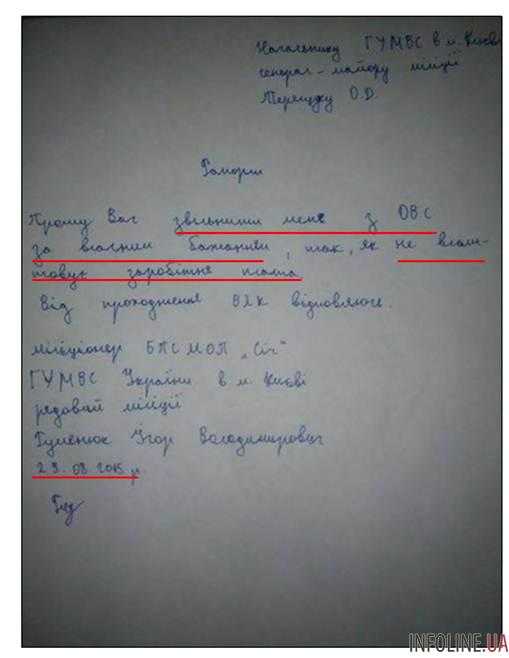 Начальнику ГУМВС в м. Києві
генерал-майору міліції
Терещуку О.Д.
Рапорт
Прошу Вас звільнити мене з ОВС
за власним бажанням, так, як не влаш-
товує заробітна плата
Від проходження ВЛК відмовляюсь.
міліціонер БПСМОП „Січ"
ГУМВС України в м. Києві
рядовий міліції
Гуменюк Ігор Володимирович
23.08.2015 р.
INFOLINE.UA